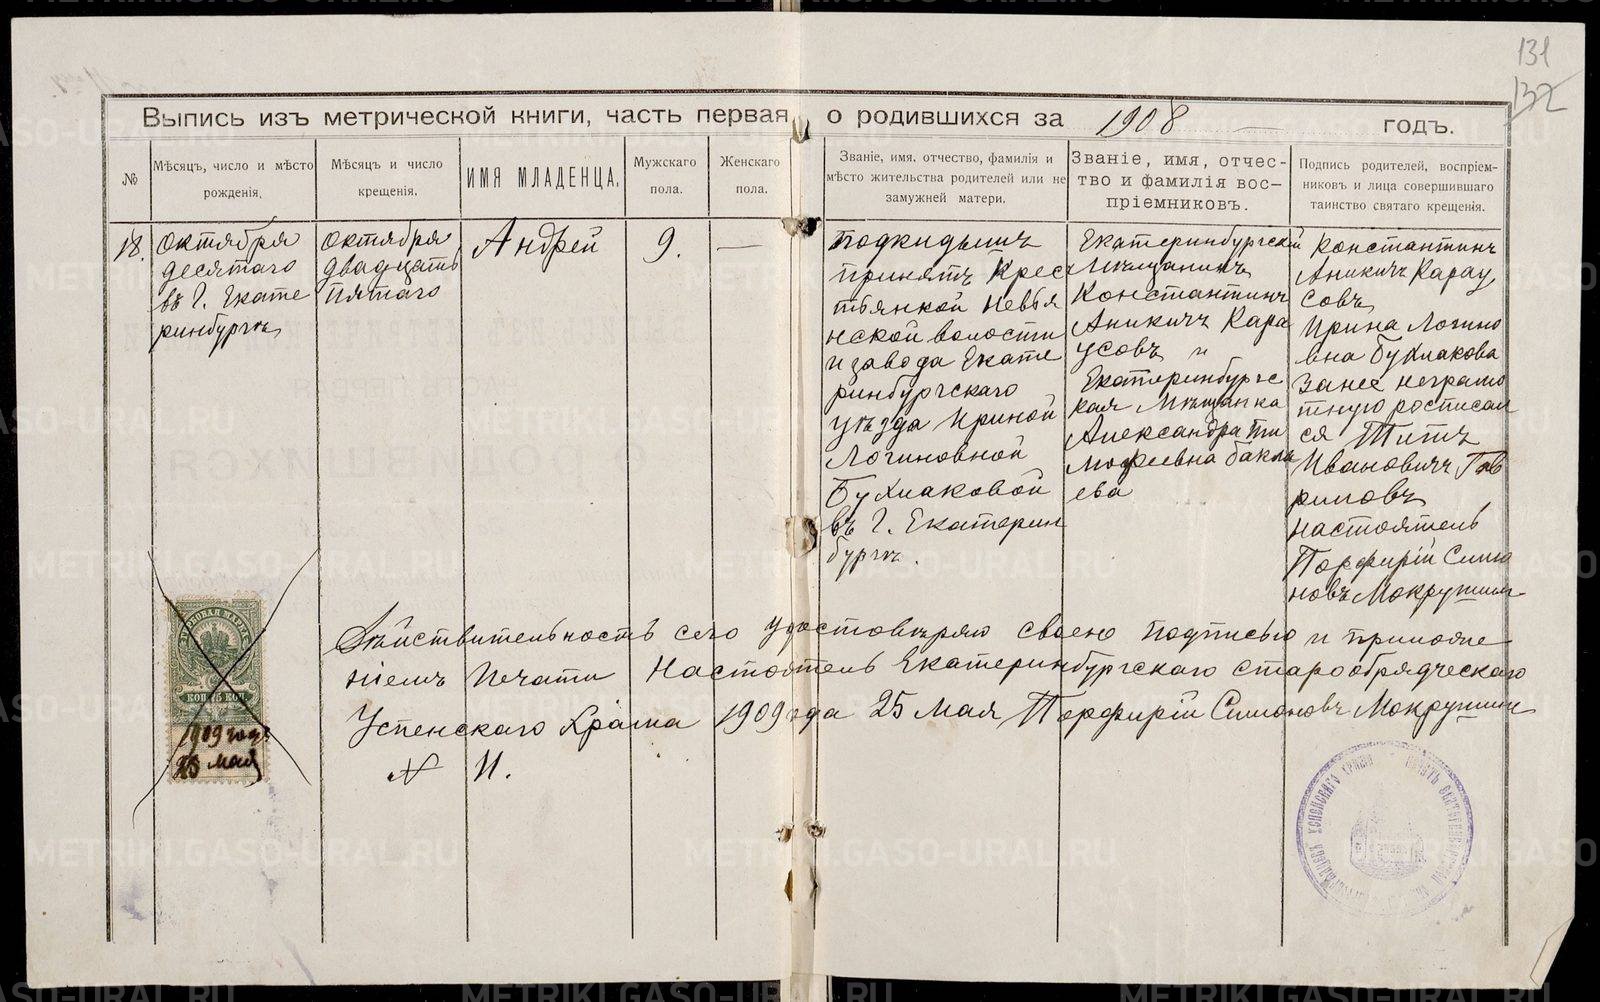 131
132
Выпись изъ метрической книги, часть первая, о родившихся за 1908 годъ.
№
Мѣсяцъ, число и мѣсто
рожденія.
Мѣсяцъ и число
крещенія.
ИМЯ МЛАДЕНЦА.
Мужскаго
пола.
Женскаго
пола.
Званіе, имя, отчество, фамилія и
мѣсто жительства родителей или не
замужней матери.
Званіе, имя, отчес-
тво и фамилія вос-
пріемниковъ.
Подпись родителей, воспріем-
никовъ и лица совершившаго
таинство святаго крещенія.
18.
Октября
десятаго
въ Г. Екате
ринбургѣ
Октября
двадцать
пятаго
Андрей
9.
—
Подкидышъ
принятъ Крес
тьянкой Невья
нской волости
и завода Екате
ринбургскаго
уѣзда Ириной
Логиновной
Бухлаковой
въ Г. Екатерин
бургѣ.
Екатеринбургскій
Мѣщанинъ
Константинъ
Аникичъ Кара
усовъ и
Екатеринбургс
кая Мѣщанка
Александра Ти
мофеевна Бакла
ева
Константинъ
Аникичъ Карау
совъ
Ирина Логино
вна Бухлакова
Занее неграмо
тную росписал
ся Титъ
Ивановичъ Гав
риловъ
Настоятель
Порфирій Симо
новъ Мокрушин
Дѣйствительность сего удостовѣряю своею подписью и приложе
ніемъ Печати Настоятель Екатеринбургскаго старообрядческаго
Успенскаго Храма 1909 года 25 Мая Порфирій Симоновъ Мокрушин
№ 11.
ГЕРБОВАЯ МАРКА
КОП. 75 КОП.
1909 года
25 мая
УСПЕНСКАГО ХРАМА
METRIKI.GASO-URAL.RU